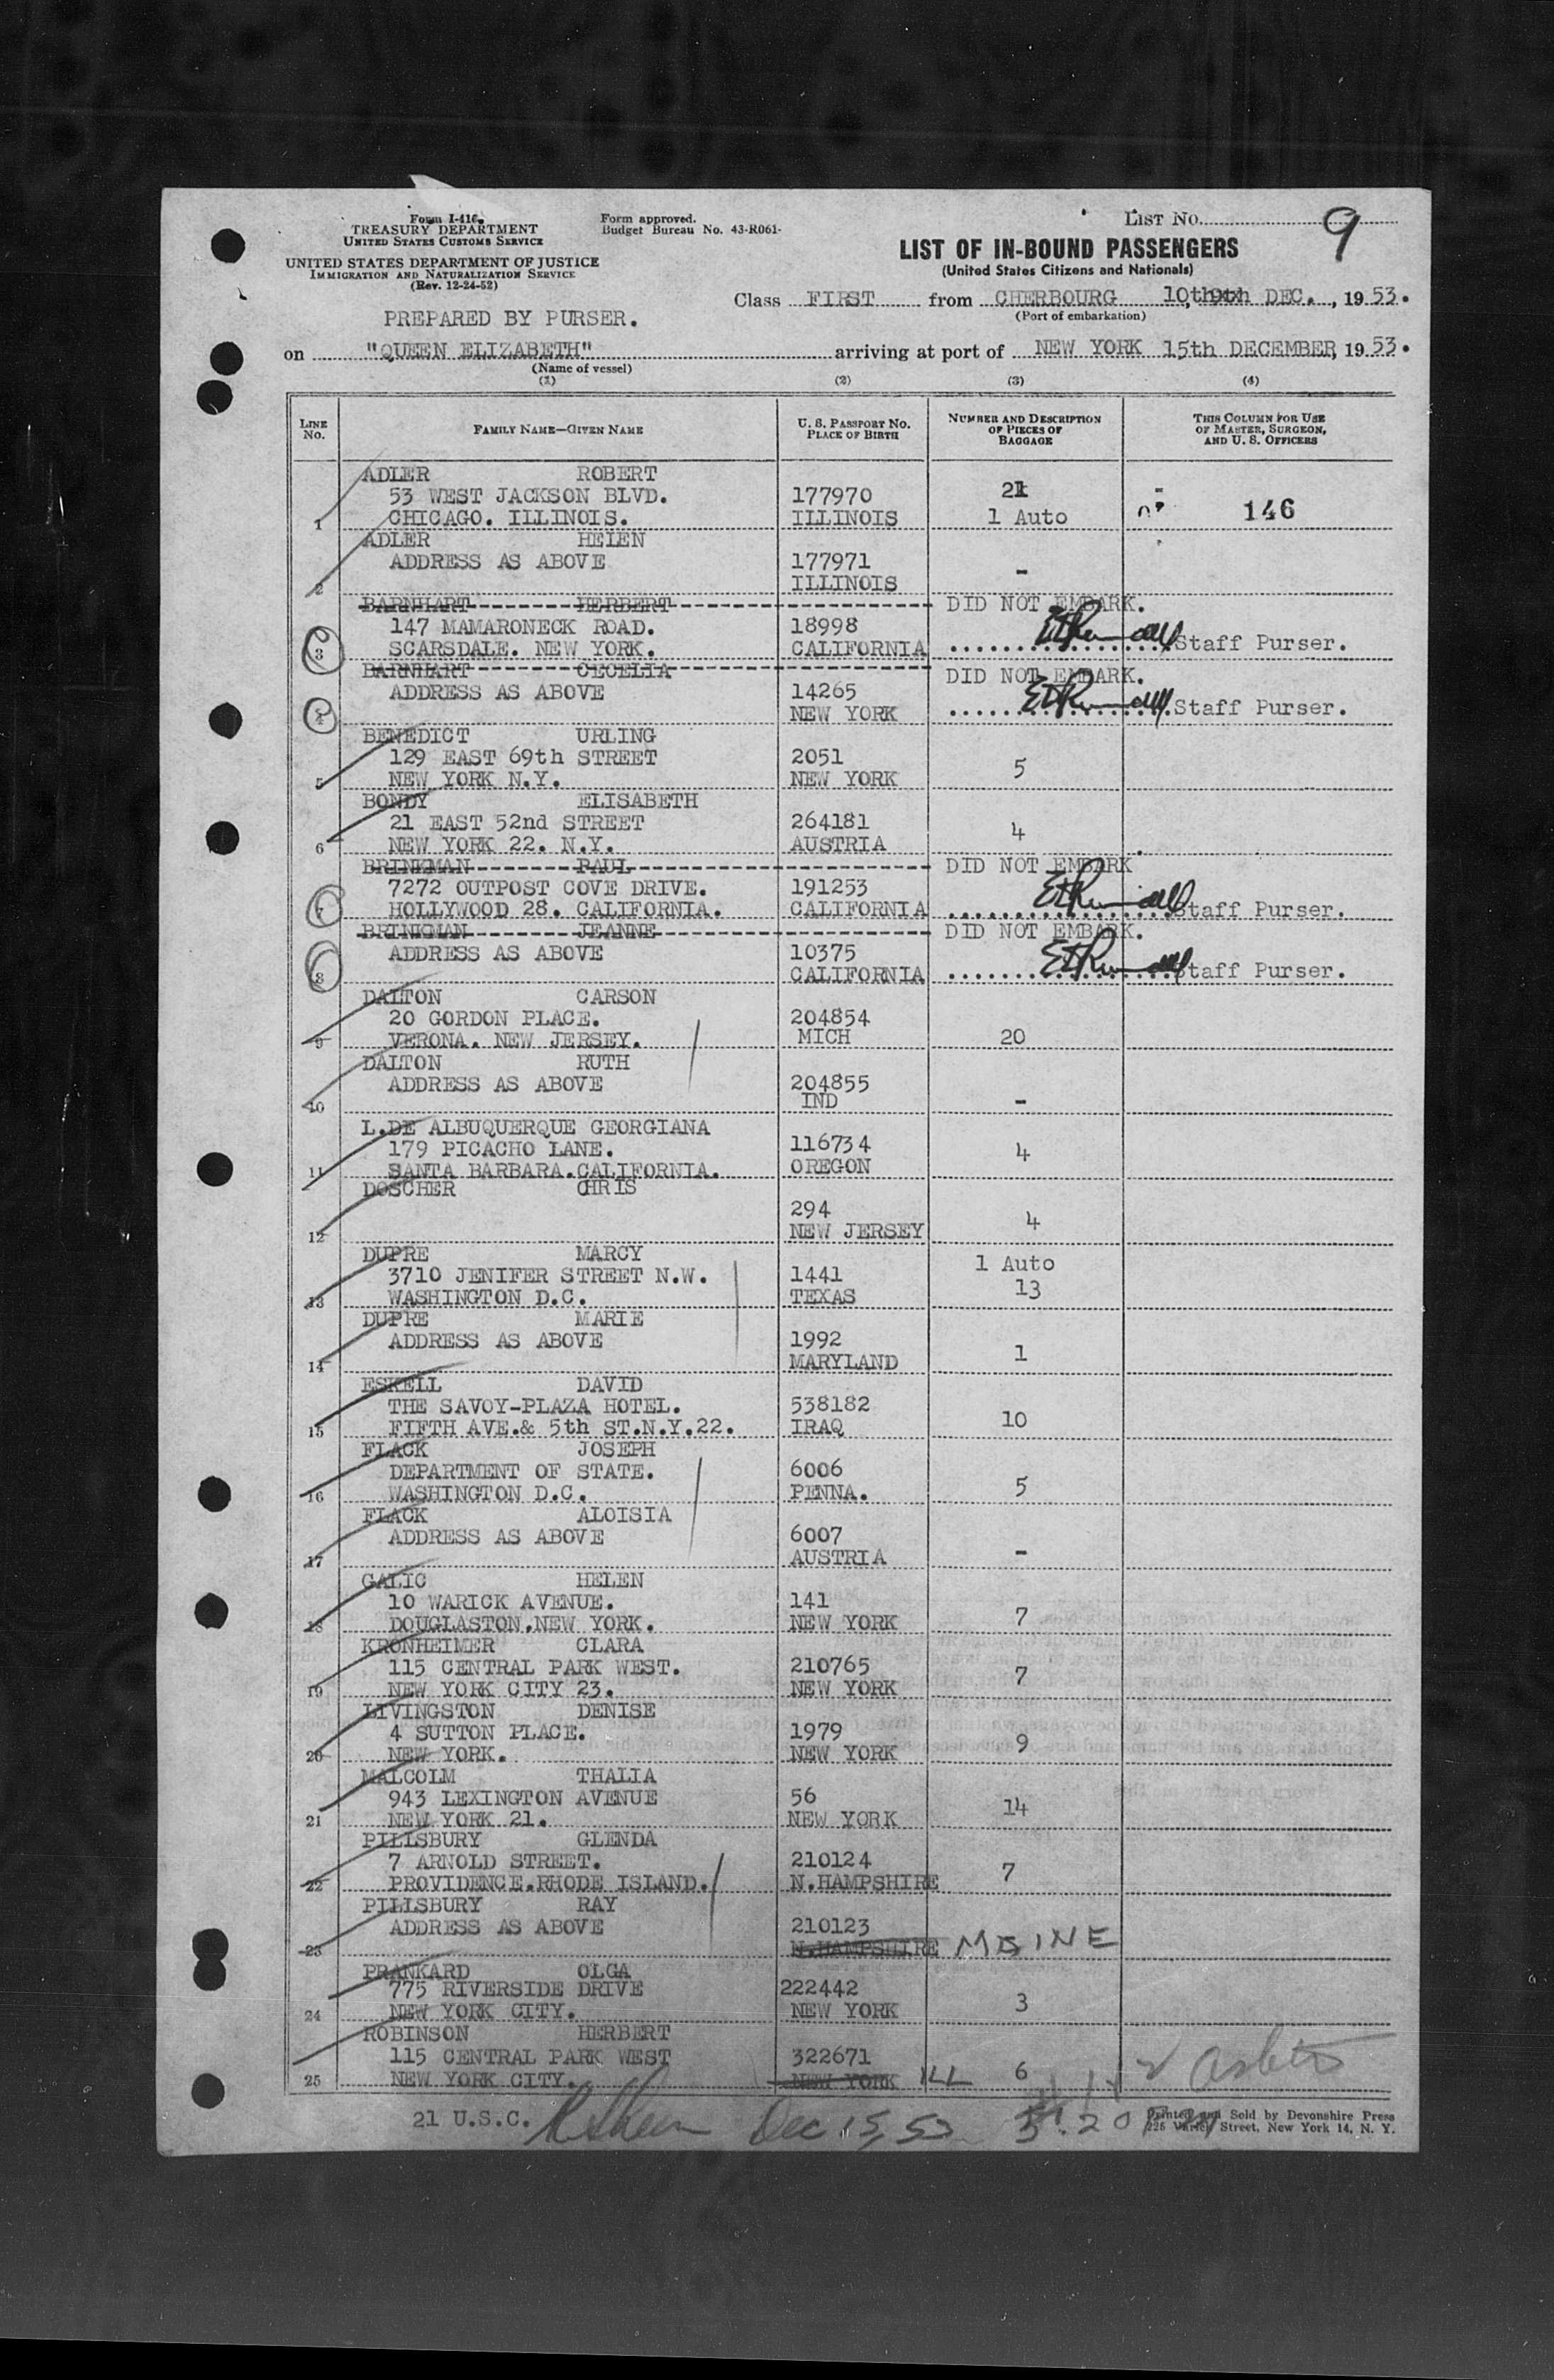 Form I-416.
TREASURY DEPARTMENT
UNITED STATES CUSTOMS SERVICE
UNITED STATES DEPARTMENT OF JUSTICE
IMMIGRATION AND NATURALIZATION SERVICE
(Rev. 12-24-52)
Form approved.
Budget Bureau No. 43-R061-
LIST No. 9
LIST OF IN-BOUND PASSENGERS
(United States Citizens and Nationals)
Class FIRST from CHERBOURG 10th DEC., 1953.
(Port of embarkation)
PREPARED BY PURSER.
on "QUEEN ELIZABETH" arriving at port of NEW YORK 15th DECEMBER, 1953.
(Name of vessel)
(1) (2) (3) (4)
LINE No. FAMILY NAME—GIVEN NAME U. S. PASSPORT No. PLACE OF BIRTH NUMBER AND DESCRIPTION OF PIECES OF BAGGAGE THIS COLUMN FOR USE OF MASTER, SURGEON, AND U. S. OFFICERS
ADLER ROBERT
53 WEST JACKSON BLVD. 177970 21
1 CHICAGO. ILLINOIS. ILLINOIS 1 Auto 146
ADLER HELEN
ADDRESS AS ABOVE 177971
2 ILLINOIS -
BARNHART HERBERT DID NOT EMBARK.
147 MAMARONECK ROAD. 18998
3 SCARSDALE. NEW YORK. CALIFORNIA Staff Purser.
BARNHART CECELIA DID NOT EMBARK.
ADDRESS AS ABOVE 14265
4 NEW YORK Staff Purser.
BENEDICT URLING
129 EAST 69th STREET 2051
5 NEW YORK N.Y. NEW YORK 5
BONDY ELISABETH
21 EAST 52nd STREET 264181
6 NEW YORK 22. N.Y. AUSTRIA 4
BRINKMAN PAUL DID NOT EMBARK
7272 OUTPOST COVE DRIVE. 191253
7 HOLLYWOOD 28. CALIFORNIA. CALIFORNIA Staff Purser.
BRINKMAN JEANNE DID NOT EMBARK.
ADDRESS AS ABOVE 10375
8 CALIFORNIA Staff Purser.
DALTON CARSON
20 GORDON PLACE. 204854
9 VERONA. NEW JERSEY. MICH 20
DALTON RUTH
ADDRESS AS ABOVE 204855
10 IND -
L.DE ALBUQUERQUE GEORGIANA
179 PICACHO LANE. 116734
11 SANTA BARBARA.CALIFORNIA. OREGON 4
DOSCHER CHRIS
294
12 NEW JERSEY 4
DUPRE MARCY 1 Auto
3710 JENIFER STREET N.W. 1441 13
13 WASHINGTON D.C. TEXAS
DUPRE MARIE
ADDRESS AS ABOVE 1992
14 MARYLAND 1
ESKELL DAVID
THE SAVOY-PLAZA HOTEL. 538182
15 FIFTH AVE.& 5th ST.N.Y.22. IRAQ 10
FLACK JOSEPH
DEPARTMENT OF STATE. 6006
16 WASHINGTON D.C. PENNA. 5
FLACK ALOISIA
ADDRESS AS ABOVE 6007
17 AUSTRIA -
GALIC HELEN
10 WARICK AVENUE. 141
18 DOUGLASTON.NEW YORK. NEW YORK 7
KRONHEIMER CLARA
115 CENTRAL PARK WEST. 210765
19 NEW YORK CITY 23. NEW YORK 7
LIVINGSTON DENISE
4 SUTTON PLACE. 1979
20 NEW YORK. NEW YORK 9
MALCOLM THALIA
943 LEXINGTON AVENUE 56
21 NEW YORK 21. NEW YORK 14
PILLSBURY GLENDA
7 ARNOLD STREET. 210124
22 PROVIDENCE.RHODE ISLAND. N.HAMPSHIRE 7
PILLSBURY RAY
ADDRESS AS ABOVE 210123
23 N.HAMPSHIRE MAINE
PRANKARD OLGA
775 RIVERSIDE DRIVE 222442
24 NEW YORK CITY. NEW YORK 3
ROBINSON HERBERT
115 CENTRAL PARK WEST 322671
25 NEW YORK CITY. NEW YORK ILL 6
21 U.S.C. Dec 15, 53
Printed and Sold by Devonshire Press
225 Varick Street, New York 14, N. Y.